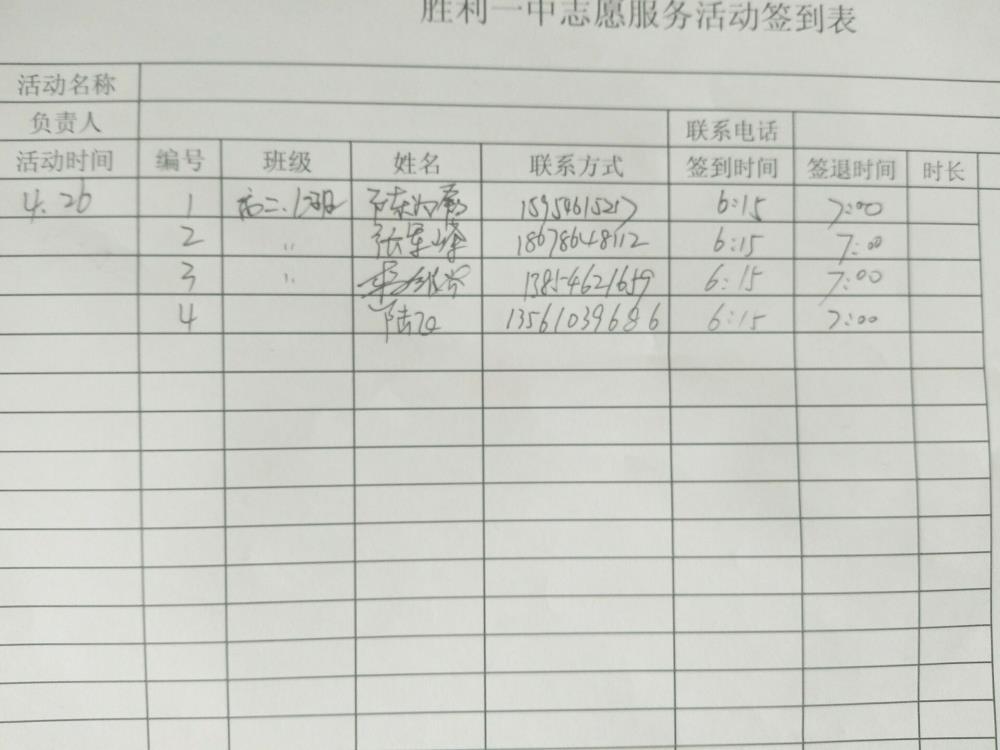 胜利一中志愿服务活动签到表
活动名称
负责人 联系电话
活动时间 编号 班级 姓名 联系方式 签到时间 签退时间 时长
4.26 1 高二.1班 15954615217 6:15 7:00
2 〃 张军峰 18678648112 6:15 7:00
3 〃 13854621659 6:15 7:00
4 陆 13561039686 6:15 7:00